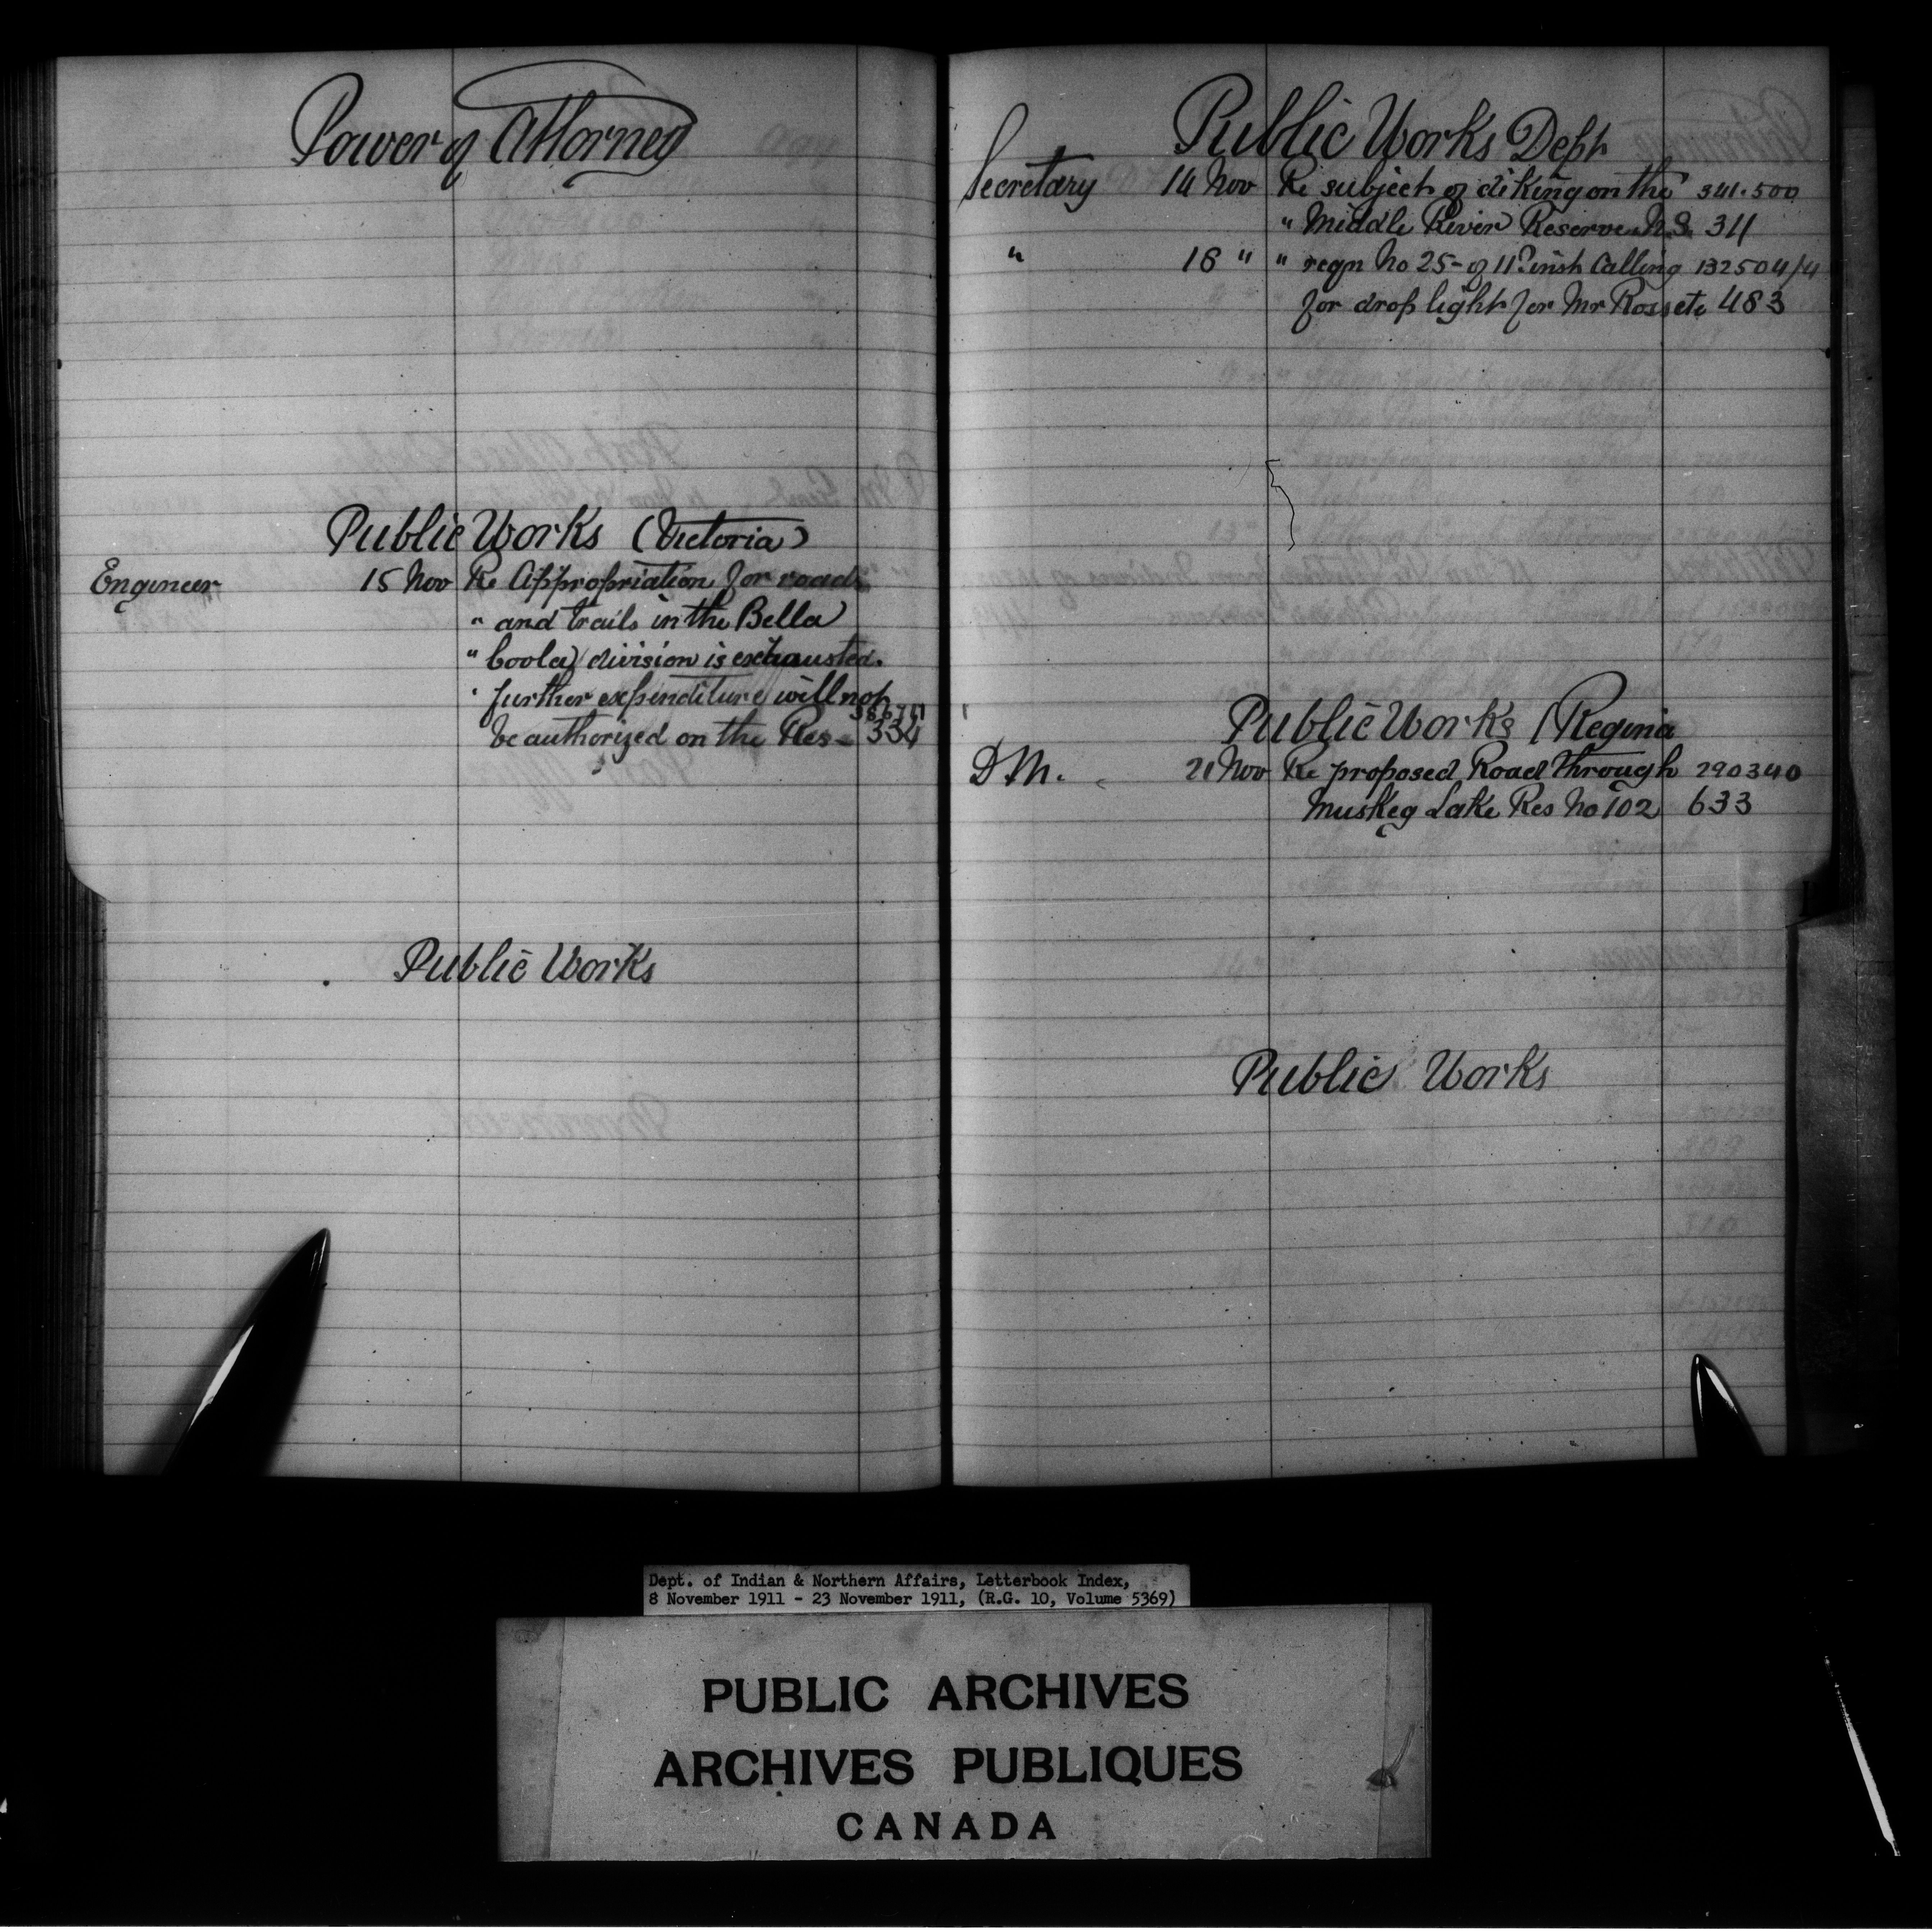 Power of Attorney
Public Works (Victoria)
Engineer 15 Nov Re Appropriation for roads
" and trails in the Bella
" Coola division is exhausted.
" further expenditure will not
be authorized on the Res - 334
Public Works
Public Works Dept
Secretary 14 Nov Re subject of diking on the 341.500
" Middle River Reserve N.S. 311
" 18 " " reqn No 25 - of 11 inst Calling 132504/4
for drop light for Mr Ross etc 483
Public Works (Regina
D.M. 21 Nov Re proposed Road through 290340
Muskeg Lake Res No 102 633
Public Works
Dept. of Indian & Northern Affairs, Letterbook Index,
8 November 1911 - 23 November 1911, (R.G. 10, Volume 5369)
PUBLIC ARCHIVES
ARCHIVES PUBLIQUES
CANADA